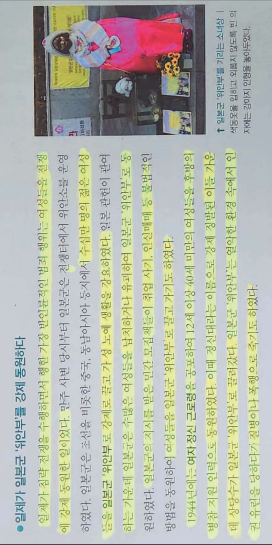 ● 일제가 일본군 '위안부'를 강제 동원하다
일제가 침략 전쟁을 수행하면서 행한 가장 반인륜적인 범죄 행위는 여성들을 전쟁
에 강제 동원한 일이었다. 만주 사변 당시부터 일본군은 전쟁터에서 위안소를 운영
하였다. 일본군은 조선을 비롯한 중국, 동남아시아 등지에서 수십만 명의 젊은 여성
들을 일본군 '위안부'로 강제로 끌고 가 성 노예 생활을 강요하였다. 일본 관헌이 관여
하는 가운데 일본군은 수많은 여성들을 납치하거나 유괴하여 일본군 '위안부'로 동
원하였다. 일본군의 지시를 받은 민간 모집 책들이 취업 사기, 인신매매 등 불법적인
방법을 동원하여 여성들을 일본군 '위안부'로 끌고 가기도 하였다.
1944년에는 여자 정신 근로령을 공포하여 12세 이상 40세 미만의 여성들을 후방의
병참 지원 인력으로 동원하였다. 이때 정신대라는 이름으로 강제 징발된 이들 가운
데 상당수가 일본군 '위안부'로 끌려갔다. 일본군 '위안부'는 열악한 환경 속에서 인
권 유린을 당하다가 전쟁이나 폭행으로 죽기도 하였다.
↑ 일본군 '위안부'를 기리는 소녀상 |
색동옷을 입히고 외롭지 않도록 빈 의
자에는 강아지 인형을 놓아두었다.